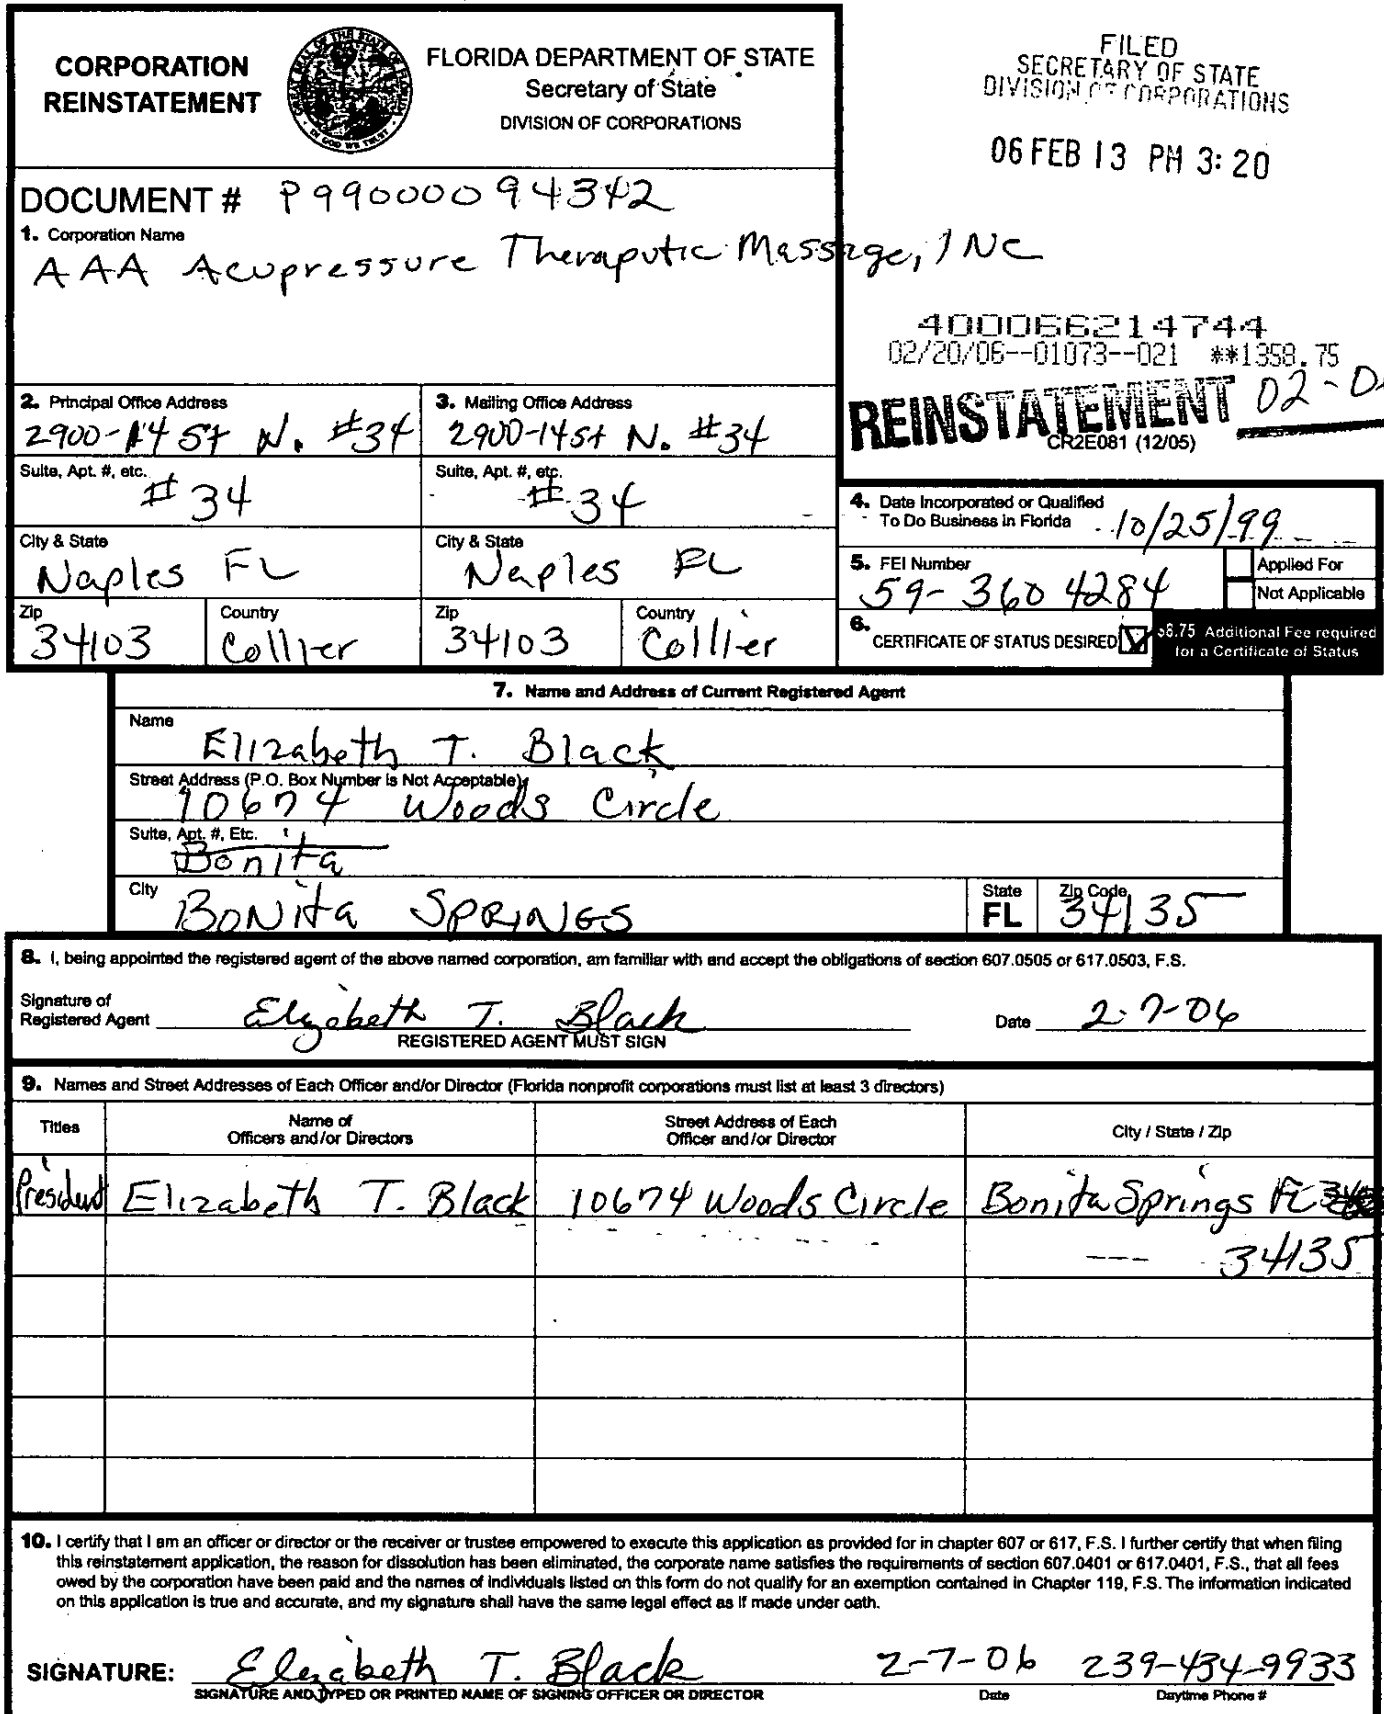 CORPORATION
REINSTATEMENT
FLORIDA DEPARTMENT OF STATE
Secretary of State
DIVISION OF CORPORATIONS
FILED
SECRETARY OF STATE
DIVISION OF CORPORATIONS
06 FEB 13 PM 3:20
DOCUMENT # P99000094342
1. Corporation Name
AAA Acupressure Theraputic Massage, INC
400066214744
02/20/06--01073--021 **1358.75
REINSTATEMENT 02-0
CR2E081 (12/05)
2. Principal Office Address
2900-14 St N. #34
3. Mailing Office Address
2900-14St N. #34
Suite, Apt. #, etc.
#34
Suite, Apt. #, etc.
#34
City & State
Naples FL
City & State
Naples FL
Zip
34103
Country
Collier
Zip
34103
Country
Collier
4. Date Incorporated or Qualified
To Do Business in Florida 10/25/99
5. FEI Number
59-3604284
Applied For
Not Applicable
6. CERTIFICATE OF STATUS DESIRED
$8.75 Additional Fee required
for a Certificate of Status
7. Name and Address of Current Registered Agent
Name
Elizabeth T. Black
Street Address (P.O. Box Number is Not Acceptable)
10674 Woods Circle
Suite, Apt. #, Etc.
Bonita
City
BONita SPRINGS
State
FL
Zip Code
34135
8. I, being appointed the registered agent of the above named corporation, am familiar with and accept the obligations of section 607.0505 or 617.0503, F.S.
Signature of
Registered Agent Elizabeth T. Black
REGISTERED AGENT MUST SIGN
Date 2-7-06
9. Names and Street Addresses of Each Officer and/or Director (Florida nonprofit corporations must list at least 3 directors)
Titles
Name of
Officers and/or Directors
Street Address of Each
Officer and/or Director
City / State / Zip
President Elizabeth T. Black 10674 Woods Circle Bonita Springs FL
34135
10. I certify that I am an officer or director or the receiver or trustee empowered to execute this application as provided for in chapter 607 or 617, F.S. I further certify that when filing
this reinstatement application, the reason for dissolution has been eliminated, the corporate name satisfies the requirements of section 607.0401 or 617.0401, F.S., that all fees
owed by the corporation have been paid and the names of individuals listed on this form do not qualify for an exemption contained in Chapter 119, F.S. The information indicated
on this application is true and accurate, and my signature shall have the same legal effect as if made under oath.
SIGNATURE: Elizabeth T. Black 2-7-06 239-434-9933
SIGNATURE AND TYPED OR PRINTED NAME OF SIGNING OFFICER OR DIRECTOR
Date
Daytime Phone #